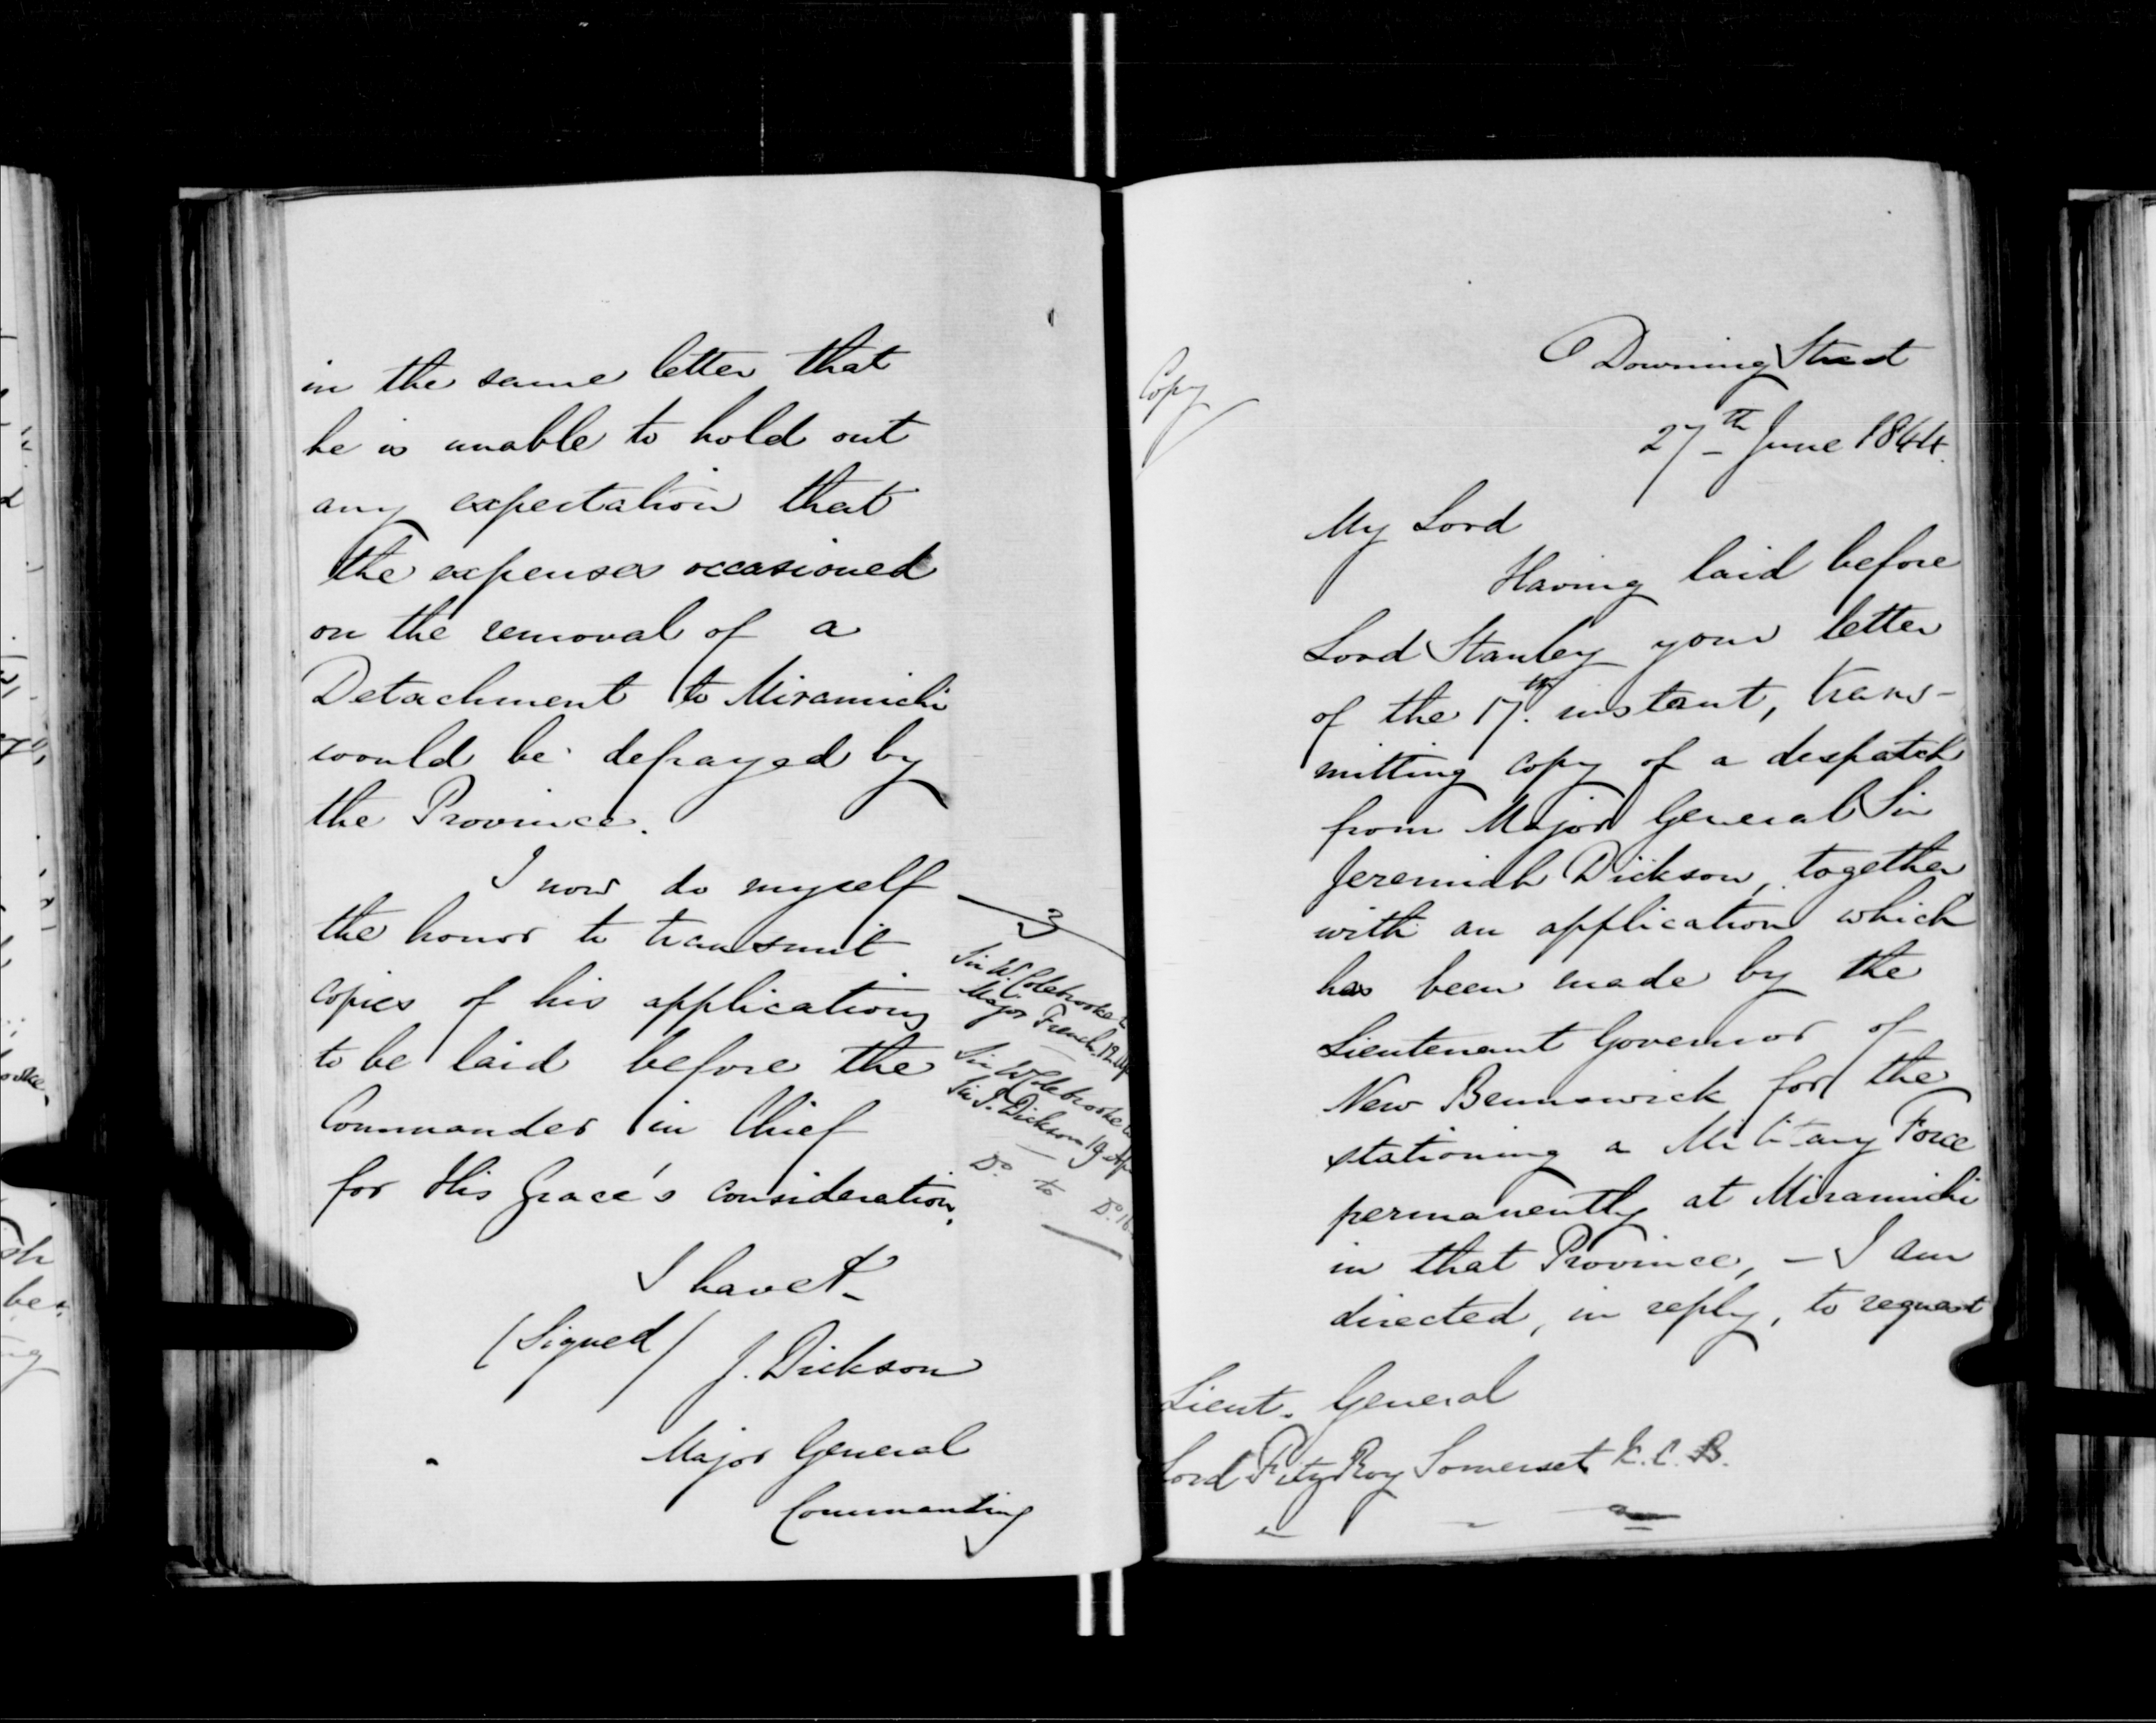 in the same letter that
he is unable to hold out
any expectation that
the expenses occasioned
on the removal of a
Detachment to Miramichi
would be defrayed by
the Province.
I now do myself
the honor to transmit
copies of his applications
to be laid before the
Commander in Chief
for His Grace's consideration.
I have &c
(Signed) J. Dickson
Major General
Commanding
3
Sir W. Colebrooke
Major French 12
Sir W Colebrooke
Sir J. Dickson 19
Do. to Do.
Copy
Downing Street
27th June 1844.
My Lord
Having laid before
Lord Stanley your letter
of the 17th. instant, trans-
mitting copy of a despatch
from Major General Sir
Jeremiah Dickson, together
with an application which
has been made by the
Lieutenant Governor of
New Brunswick for the
stationing a Military Force
permanently at Miramichi
in that Province, — I am
directed, in reply, to request
Lieut. General
Lord FitzRoy Somerset K.C.B.